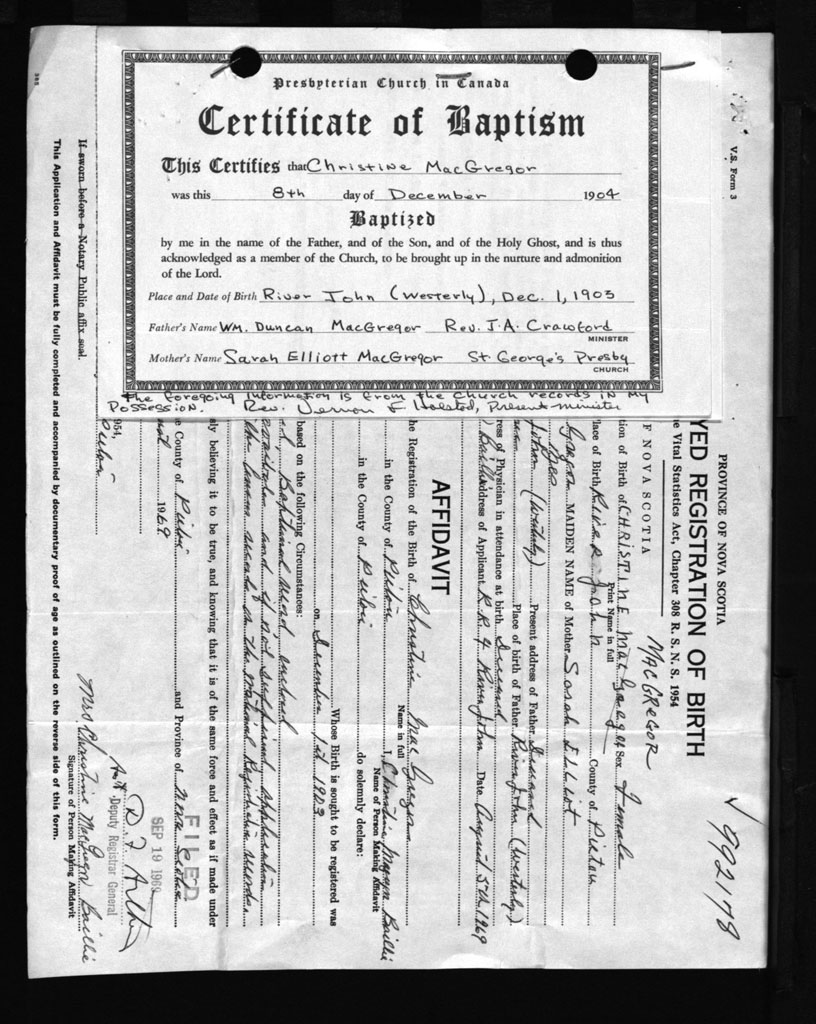 Presbyterian Church in Canada
Certificate of Baptism
This Certifies that Christine MacGregor
was this 8th day of December 1904
Baptized
by me in the name of the Father, and of the Son, and of the Holy Ghost, and is thus
acknowledged as a member of the Church, to be brought up in the nurture and admonition
of the Lord.
Place and Date of Birth River John (Westerly), Dec. 1, 1903
Father's Name Wm. Duncan MacGregor Rev. J.A. Crawford
MINISTER
Mother's Name Sarah Elliott MacGregor St George's Presby
CHURCH
The foregoing information is from the church records in my
possession. Rev. Vernon F. Holsted, Present minister
V.S. Form 3
992178
PROVINCE OF NOVA SCOTIA
YED REGISTRATION OF BIRTH
e Vital Statistics Act, Chapter 308 R. S. N. S. 1954
F NOVA SCOTIA
MACGREGOR
tion of Birth of CHRISTINE Mac Gregor Sex Female
Print Name in full
lace of Birth River John County of Pictou
MAIDEN NAME of Mother Sarah Elliot
John (Westerly) Present address of Father Deceased
Place of birth of Father River John (Westerly)
ress of Physician in attendance at birth Deceased
Baillie Address of Applicant R.R. 4 River John Date August 5th 1969
AFFIDAVIT
he Registration of the Birth of Christine Mac Gregor
Name in full
in the County of Pictou I, Christine Baillie
Name of Person Making Affidavit
in the County of Pictou do solemnly declare:
Whose Birth is sought to be registered was
on December 1st 1903
based on the following Circumstances:
Baptismal
and if not
the National Registration records
ly believing it to be true, and knowing that it is of the same force and effect as if made under
e County of Pictou and Province of Nova Scotia
1969
FILED
SEP 19 1969
Deputy Registrar General
954,
Pictou
Mrs Christine MacGregor Baillie
Signature of Person Making Affidavit
If sworn before a Notary Public affix seal.
This Application and Affidavit must be fully completed and accompanied by documentary proof of age as outlined on the reverse side of this form.